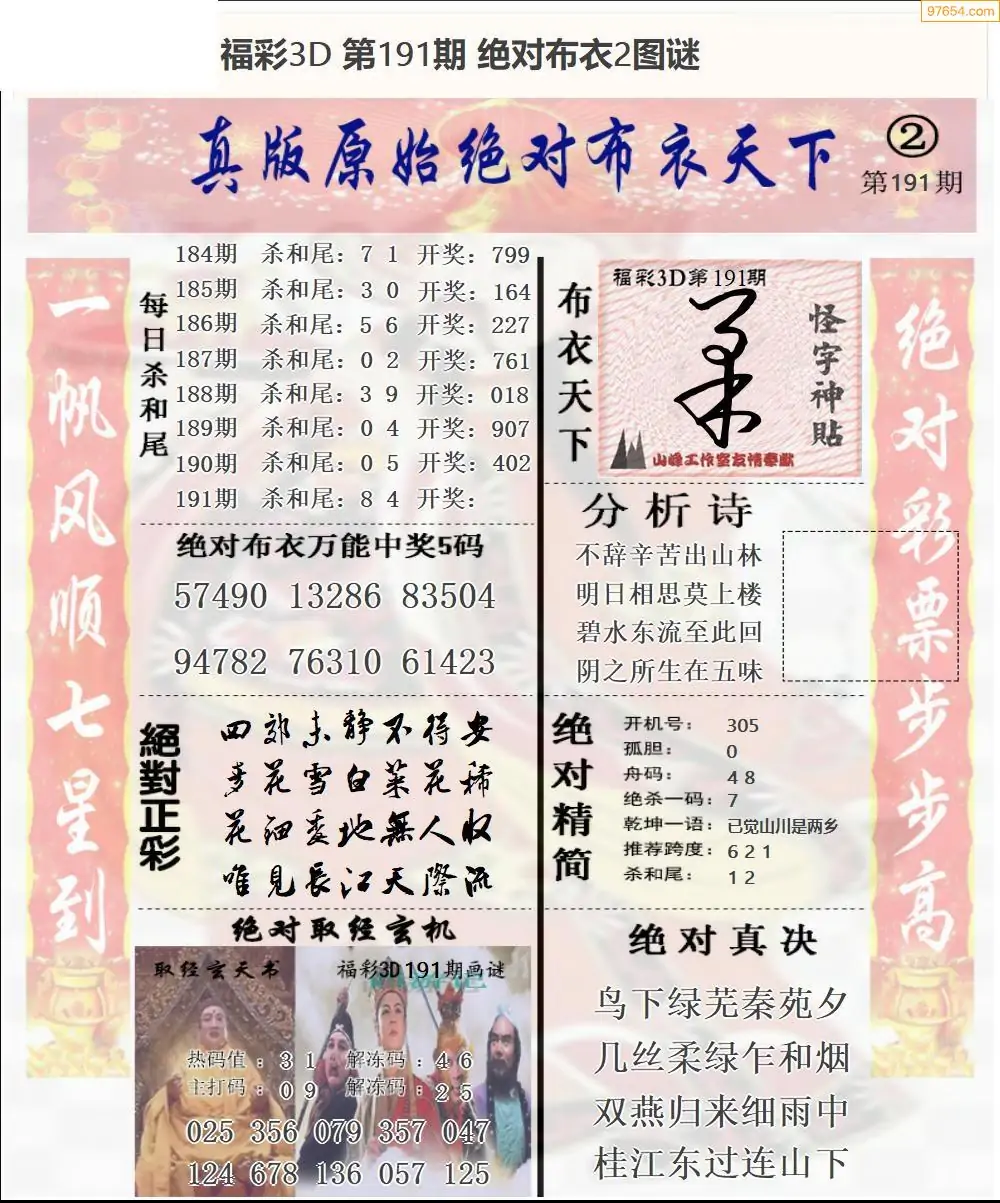 97654.com
福彩3D 第191期 绝对布衣2图谜
真版原始绝对布衣天下 ②
第191期
一帆风顺七星到
每日杀和尾
184期 杀和尾：7 1 开奖：799
185期 杀和尾：3 0 开奖：164
186期 杀和尾：5 6 开奖：227
187期 杀和尾：0 2 开奖：761
188期 杀和尾：3 9 开奖：018
189期 杀和尾：0 4 开奖：907
190期 杀和尾：0 5 开奖：402
191期 杀和尾：8 4 开奖：
绝对布衣万能中奖5码
57490 13286 83504
94782 76310 61423
絕對正彩
四郊未静不得安
麦花雪白菜花稀
花细委地無人収
唯見長江天際流
绝对取经玄机
取经玄天书
福彩3D191期画谜
热码值：3 1 解冻码：4 6
主打码：0 9 解冻码：2 5
025 356 079 357 047
124 678 136 057 125
布衣天下
福彩3D第191期
怪字神貼
山峰工作室友情奉献
分析诗
不辞辛苦出山林
明日相思莫上楼
碧水东流至此回
阴之所生在五味
绝对精简
开机号：305
孤胆：0
舟码：4 8
绝杀一码：7
乾坤一语：已觉山川是两乡
推荐跨度：6 2 1
杀和尾：1 2
绝对真决
鸟下绿芜秦苑夕
几丝柔绿乍和烟
双燕归来细雨中
桂江东过连山下
绝对彩票步步高